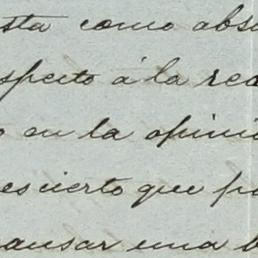 sta como abso
specto á la rea
o en la opinió
es cierto que pa
ausar una b